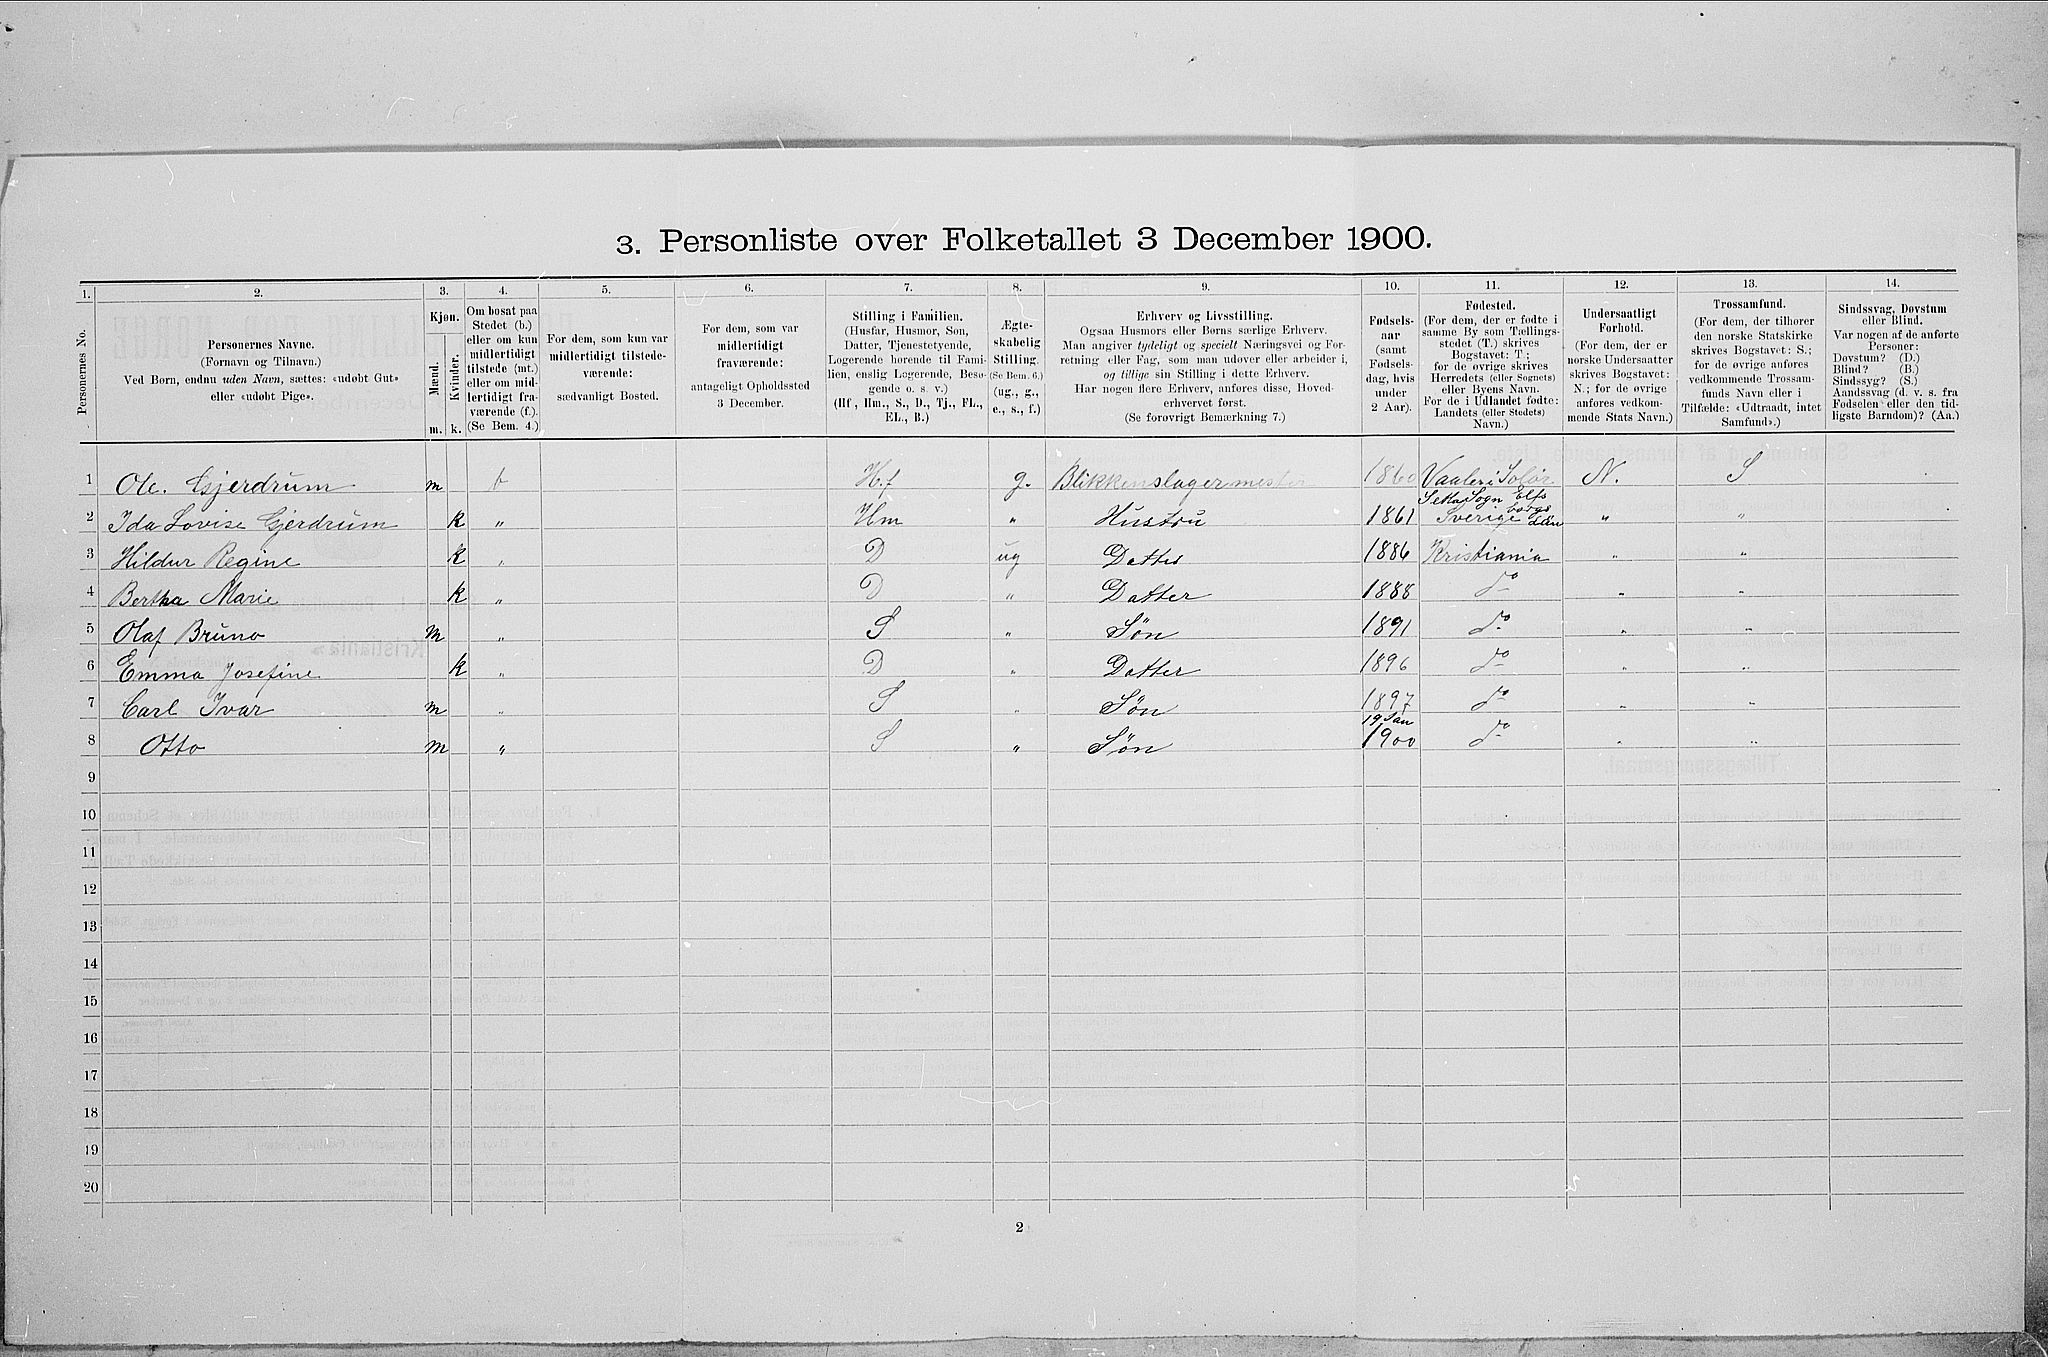 3. Personliste over Folketallet 3 December 1900.
1. 2. 3. 4. 5. 6. 7. 8. 9. 10. 11. 12. 13. 14.
Personernes No.
Personernes Navne.
(Fornavn og Tilnavn.)
Ved Børn, endnu uden Navn, sættes: «udøbt Gut»
eller «udøbt Pige».
Kjøn.
Mænd.
Kvinder.
m. k.
Om bosat paa
Stedet (b.)
eller om kun
midlertidigt
tilstede (mt.)
eller om mid-
lertidigt fra-
værende (f.).
(Se Bem. 4.)
For dem, som kun var
midlertidigt tilstede-
værende:
sædvanligt Bosted.
For dem, som var
midlertidigt
fraværende:
antageligt Opholdssted
3 December.
Stilling i Familien.
(Husfar, Husmor, Søn,
Datter, Tjenestetyende,
Logerende hørende til Fami-
lien, enslig Logerende, Besø-
gende o. s. v.)
(Hf., Hm., S., D., Tj., FL.,
EL., B.)
Ægte-
skabelig
Stilling.
(Se Bem. 6.)
(ug., g.,
e., s., f.)
Erhverv og Livsstilling.
Ogsaa Husmors eller Børns særlige Erhverv.
Man angiver tydeligt og specielt Næringsvei og For-
retning eller Fag, som man udøver eller arbeider i,
og tillige sin Stilling i dette Erhverv.
Har nogen flere Erhverv, anføres disse, Hoved-
erhvervet først.
(Se forøvrigt Bemærkning 7.)
Fødsels-
aar
(samt
Fødsels-
dag, hvis
under
2 Aar).
Fødested.
(For dem, der er fødte i
samme By som Tællings-
stedet (T.) skrives
Bogstavet: T.;
for de øvrige skrives
Herredets (eller Sognets)
eller Byens Navn.
For de i Udlandet fødte:
Landets (eller Stedets)
Navn.)
Undersaatligt
Forhold.
(For dem, der er
norske Undersaatter
skrives Bogstavet:
N.; for de øvrige
anføres vedkom-
mende Stats Navn.)
Trossamfund.
(For dem, der tilhører
den norske Statskirke
skrives Bogstavet: S.;
for de øvrige anføres
vedkommende Trossam-
funds Navn eller i
Tilfælde: «Udtraadt, intet
Samfund».)
Sindssvag, Døvstum
eller Blind.
Var nogen af de anførte
Personer:
Døvstum? (D.)
Blind? (B.)
Sindssyg? (S.)
Aandssvag (d. v. s. fra
Fødselen eller den tid-
ligste Barndom)? (Aa.)
1 Ole. Gjerdrum m b H.f g. Blikkenslagermester 1860 Vaaler i Solør N. S
2 Ida Lovise Gjerdrum k „ Hm „ Hustru 1861 Sogn Elfsborgs Län Sverige „ „
3 Hildur Regine k „ D ug Datter 1886 Kristiania „ „
4 Bertha Marie k „ D „ Datter 1888 do „ „
5 Olaf Bruno m „ S „ Søn 1891 do „ „
6 Emma Josefine k „ D „ Datter 1896 do „ „
7 Carl Ivar m „ S „ Søn 1897 do „ „
8 Otto m „ S „ Søn 19 Jan 1900 do „ „
9
10
11
12
13
14
15
16
17
18
19
20
2